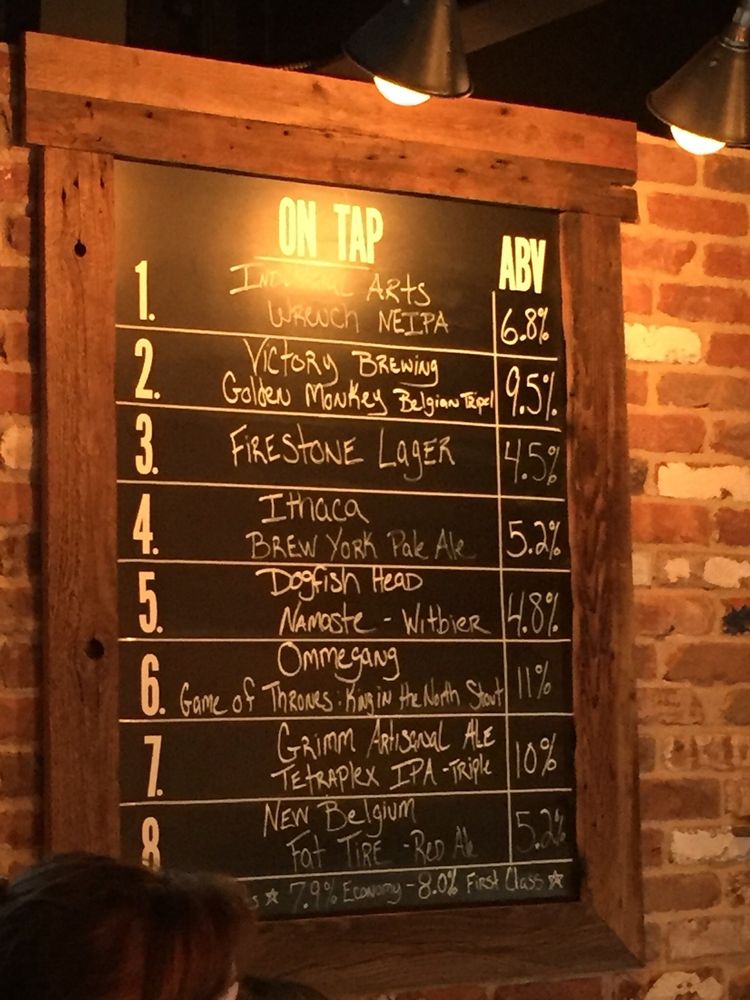 ON TAP
ABV
1. Industrial Arts
Wrench NEIPA 6.8%
2. Victory Brewing
Golden Monkey Belgian Tripel 9.5%
3. Firestone Lager 4.5%
4. Ithaca
Brew York Pale Ale 5.2%
5. Dogfish Head
Namaste - Witbier 4.8%
6. Ommegang
Game of Thrones: King in the North Stout 11%
7. Grimm Artisanal Ale
Tetraplex IPA - Triple 10%
8 New Belgium
Fat Tire - Red Ale 5.2%
☆ 7.9% Economy - 8.0% First Class ☆